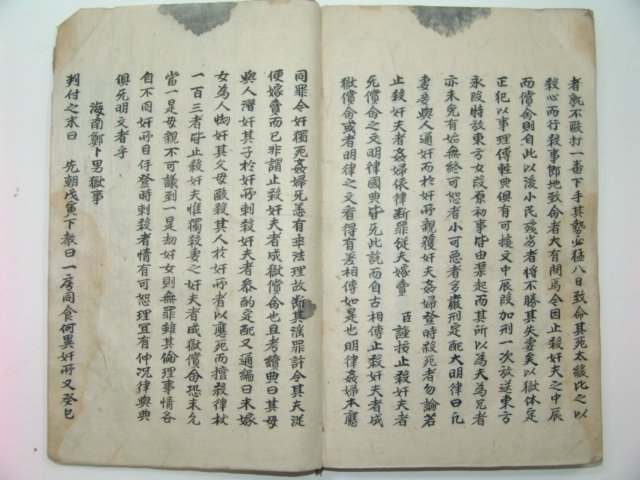 者孰不敺打一番下手其勢必猛八日致命其死太緩比之以
殺心而行殺事郎地致命者大有間焉令因止殺奸夫之中辰
而償命則自此以後小民殘劣者將不勝其失妻矣以獄体定
正犯以事理傅輕典俱有可按文中辰段加刑一次放送東方
永段特放東方女段原初事皆由渠起而其所以為夫為兄者
亦未免有始無終可恕者小可惡者多嚴刑定配大明律曰凡
妻妾與人通奸而於奸所親獲奸夫姦婦登時殺死者勿論若
止殺奸夫者姦婦依律斷罪從夫嫁賣 臣謹按止殺奸夫者
死償命之文明律國典皆无此說而自古相傳止殺奸夫者成
獄償命或者明律之文看得有差相傳如是也明律姦婦本應
同罪令奸獨死姦婦死愚有乖法理故斷其淫罪許令其夫從
便嫁賣而已非謂止殺奸夫者成獄償命也且考續典曰其母
與人潛奸其子於奸所刺殺奸夫者參酌定配又通編曰未嫁
女為人㤼奸其父母敺殺其人於奸所者以應死而擅殺律杖
一百三者皆止殺奸夫惟獨殺妻之奸夫者成獄償命恐未允
當一是母親不可議到一是劫奸女則無罪雖其倫理事情各
自不同奸所目佯登時刺殺者情有可恕理宜有仲况律與典
俱无明文者乎
海南鄭卜男獄事
判付之末曰 先朝戊寅下教曰一房同食何異奸所又癸巳